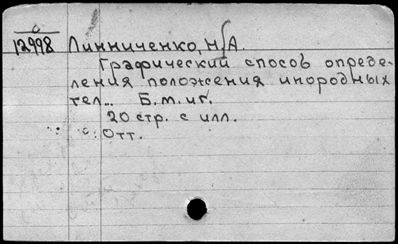 12998 Линниченко, Н.А.
Графический способ опреде-
ления положения инородных
тел... Б.м. и г.
20 стр. с илл.
Отт.